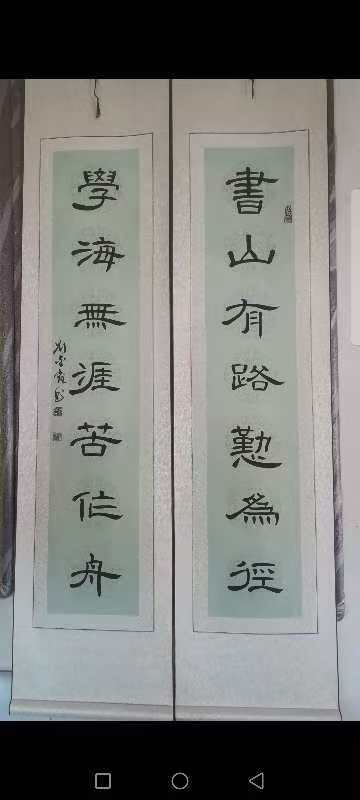 書山有路懃爲徑
學海無涯苦作舟